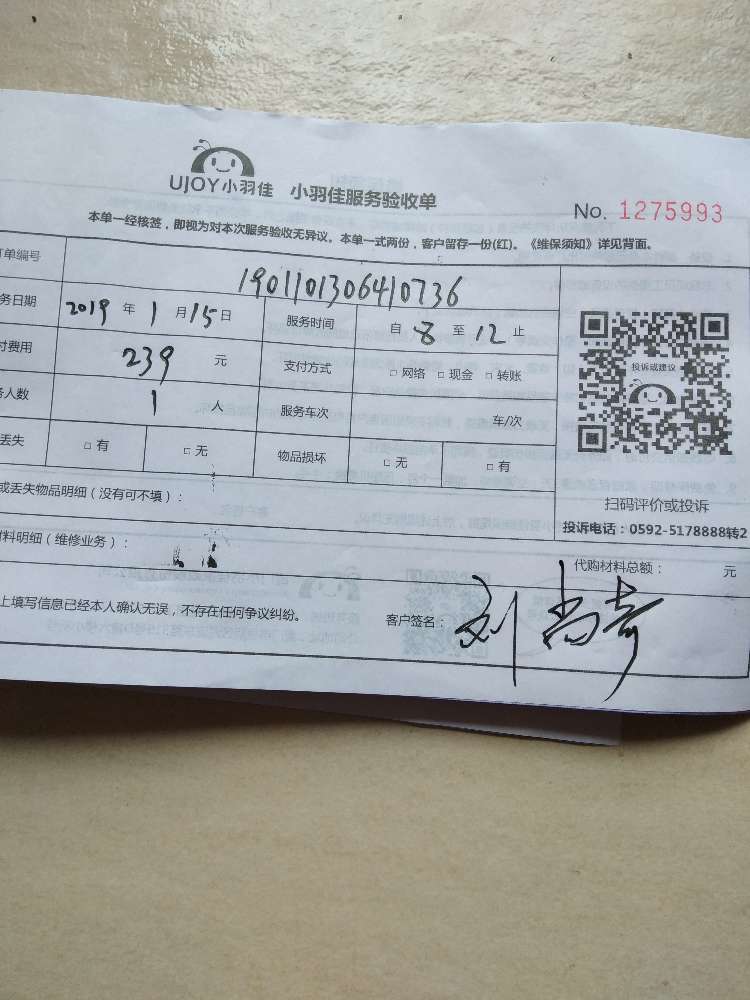 UJOY小羽佳 小羽佳服务验收单
No. 1275993
本单一经核签，即视为对本次服务验收无异议。本单一式两份，客户留存一份(红)。《维保须知》详见背面。
单编号 1901101306410736
务日期 2019 年 1 月 15 日 服务时间 自 8 至 12 止
付费用 239 元 支付方式 □ 网络 □ 现金 □ 转账
务人数 1 人 服务车次 车/次
丢失 □ 有 □ 无 物品损坏 □ 无 □ 有
投诉或建议
扫码评价或投诉
投诉电话：0592-5178888转2
或丢失物品明细（没有可不填）：
材料明细（维修业务）： 代购材料总额： 元
上填写信息已经本人确认无误，不存在任何争议纠纷。 客户签名： 刘尚奇